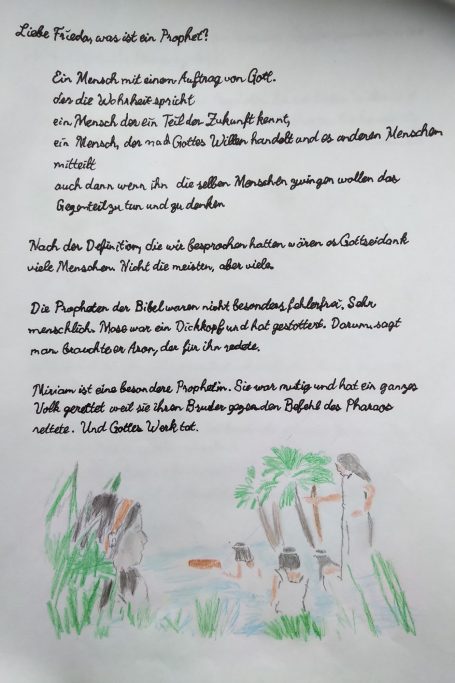 Liebe Frieda, was ist ein Prophet?
Ein Mensch mit einem Auftrag von Gott.
der die Wahrheit spricht
ein Mensch der ein Teil der Zukunft kennt,
ein Mensch, der nach Gottes Willen handelt und es anderen Menschen
mitteilt
auch dann wenn ihn die selben Menschen zwingen wollen das
Gegenteil zu tun und zu denken
Nach der Definition, die wir besprochen hatten wären es Gottseidank
viele Menschen. Nicht die meisten, aber viele.
Die Propheten der Bibel waren nicht besonders fehlerfrei. Sehr
menschlich. Mose war ein Dickkopf und hat gestottert. Darum, sagt
man brauchte er Aron, der für ihn redete.
Miriam ist eine besondere Prophetin. Sie war mutig und hat ein ganzes
Volk gerettet weil sie ihren Bruder gegen den Befehl des Pharaos
rettete. Und Gottes Werk tat.